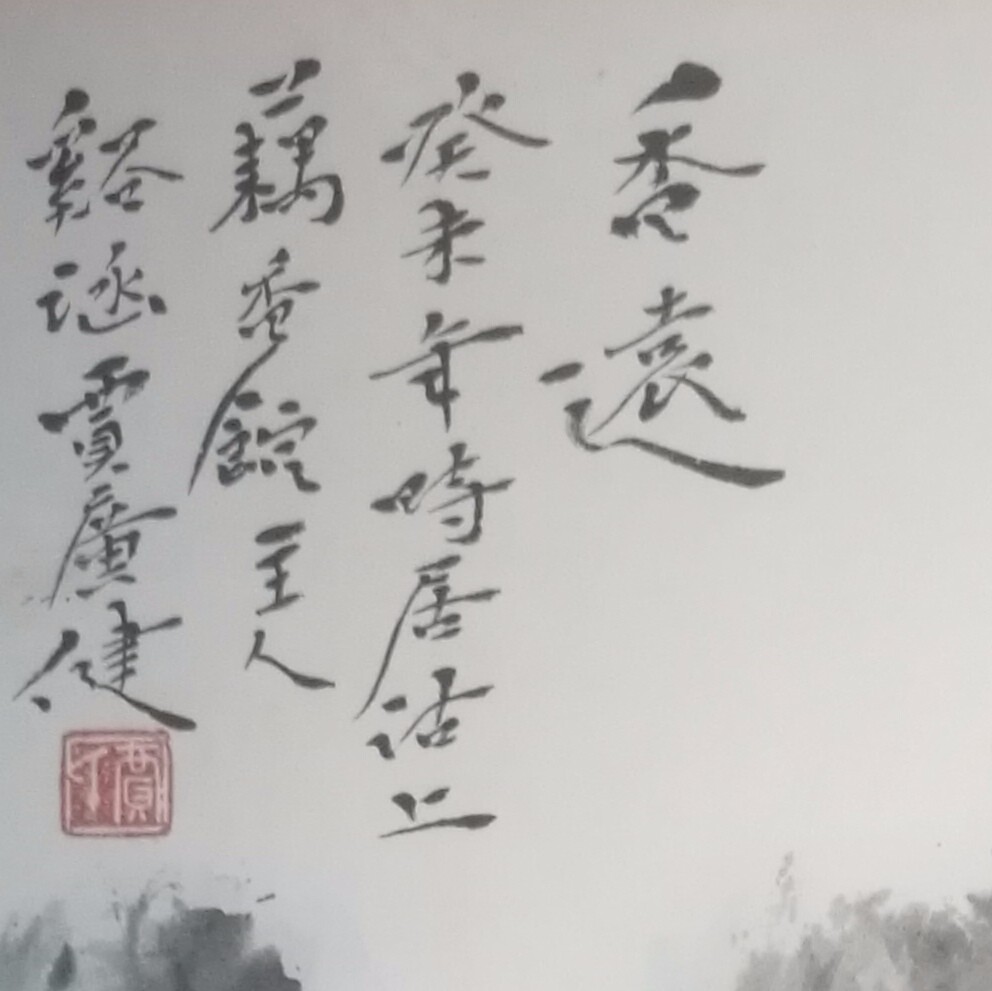 香遠
癸未年時居沽上
藕香館主人
谿涵賈廣健